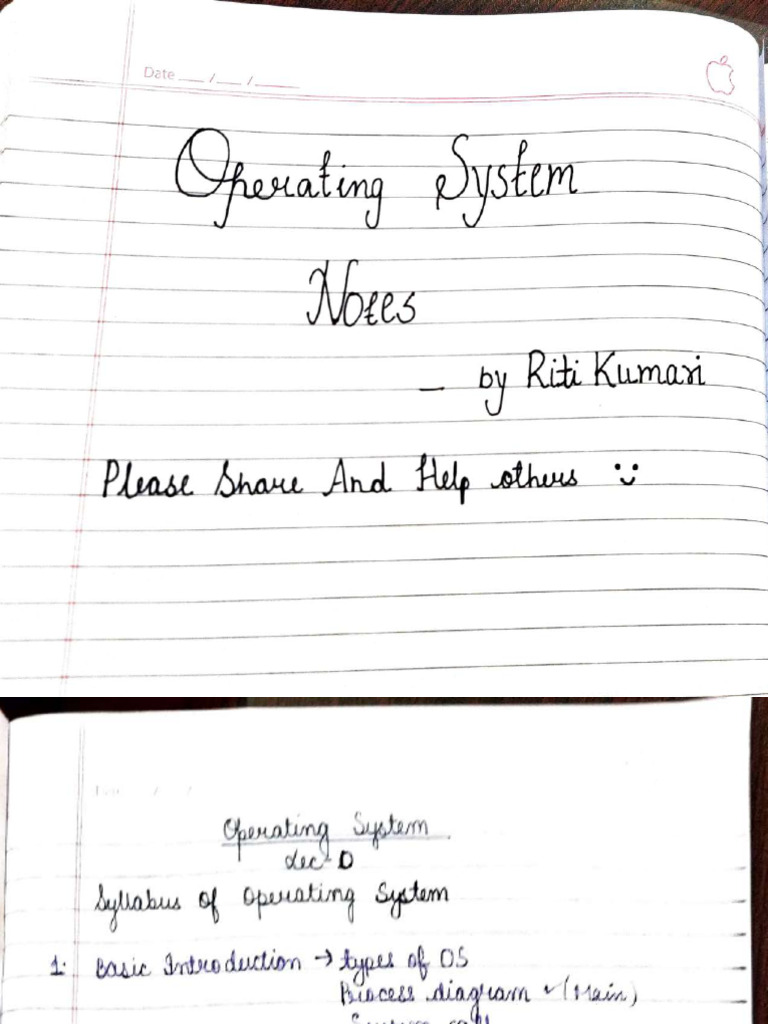 Date __ / __ / ____
Operating System
Notes
— by Riti Kumari
Please Share And Help others
Operating System
Lec-0
Syllabus of Operating System
1: Basic Introduction → types of OS
Process diagram ✓ (Main)